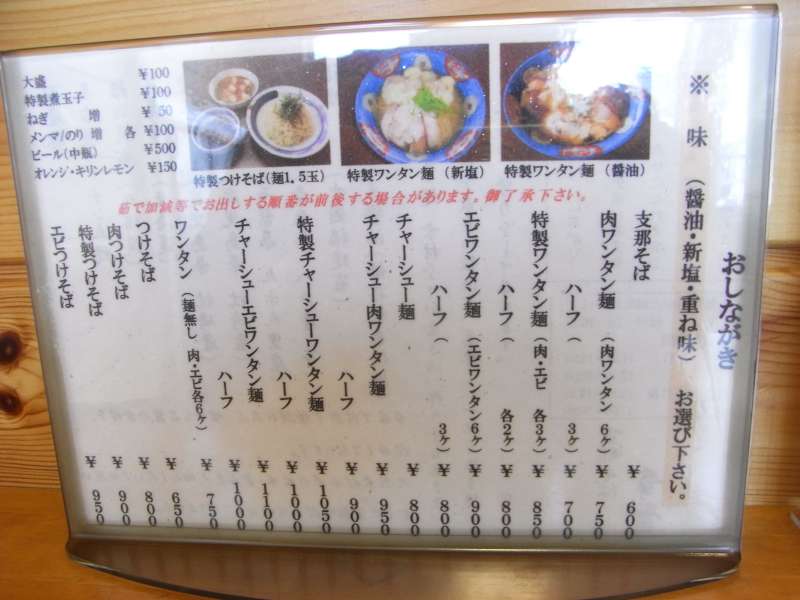 おしながき
※ 味 (醤油・新塩・重ね味) お選び下さい。
支那そば ¥600
肉ワンタン麺 (肉ワンタン 6ヶ) ¥750
ハーフ ( 3ヶ) ¥700
特製ワンタン麺 (肉・エビ 各3ヶ) ¥850
ハーフ ( 各2ヶ) ¥800
エビワンタン麺 (エビワンタン6ヶ) ¥900
ハーフ ( 3ヶ) ¥800
チャーシュー麺 ¥800
チャーシュー肉ワンタン麺 ¥950
ハーフ ¥900
特製チャーシューワンタン麺 ¥1050
ハーフ ¥1000
チャーシューエビワンタン麺 ¥1100
ハーフ ¥1000
ワンタン (麺無し 肉・エビ各6ヶ) ¥750
つけそば ¥650
肉つけそば ¥800
特製つけそば ¥900
エビつけそば ¥950
大盛 ¥100
特製煮玉子 ¥100
ねぎ 増 ¥50
メンマ/のり 増 各 ¥100
ビール(中瓶) ¥500
オレンジ・キリンレモン ¥150
特製つけそば(麺1.5玉)
特製ワンタン麺 (新塩)
特製ワンタン麺 (醤油)
茹で加減等でお出しする順番が前後する場合があります。御了承下さい。